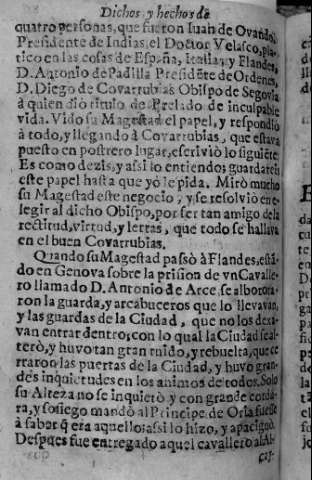 Dichos y hechos de
quatro personas, que fueron Iuan de Ovando,
Presidente de Indias, el Doctor Velasco, pla-
tico en las cosas de España, Italia, y Flandes,
D. Antonio de Padilla Presidẽte de Ordenes,
D. Diego de Covarrubias Obispo de Segovia
à quien diò titulo de Prelado de inculpable
vida. Vido su Magestad el papel, y respondiò
à todo, y llegando à Covarrubias, que estava
puesto en postrero lugar, escriviò lo siguiẽte:
Es como dezis, y assi lo entiendo; guardareis
este papel hasta que yò le pida. Mirò mucho
su Magestad este negocio, y se resolviò en e-
legir al dicho Obispo, por ser tan amigo de la
rectitud, virtud, y letras, que todo se hallava
en el buen Covarrubias.
Quando su Magestad passò à Flandes, está-
do en Genova sobre la prision de vn Cavalle-
ro llamado D. Antonio de Arce, se alborota-
ron la guarda, y arcabuceros que lo llevavan,
y las guardas de la Ciudad, que no los dexa-
van entrar dentro; con lo qual la Ciudad se al-
terò, y huvo tan gran ruido, y rebuelta, que ce-
rraron las puertas de la Ciudad, y huvo gran-
des inquietudes en los animos de todos. Solo
su Alteza no se inquietò y con grande cordu-
ra, y sosiego mandò al Principe de Oria fuesse
à saber q̃ era aquello: assi lo hizo, y apaciguò.
Despues fue entregado aquel cavallero al Al-